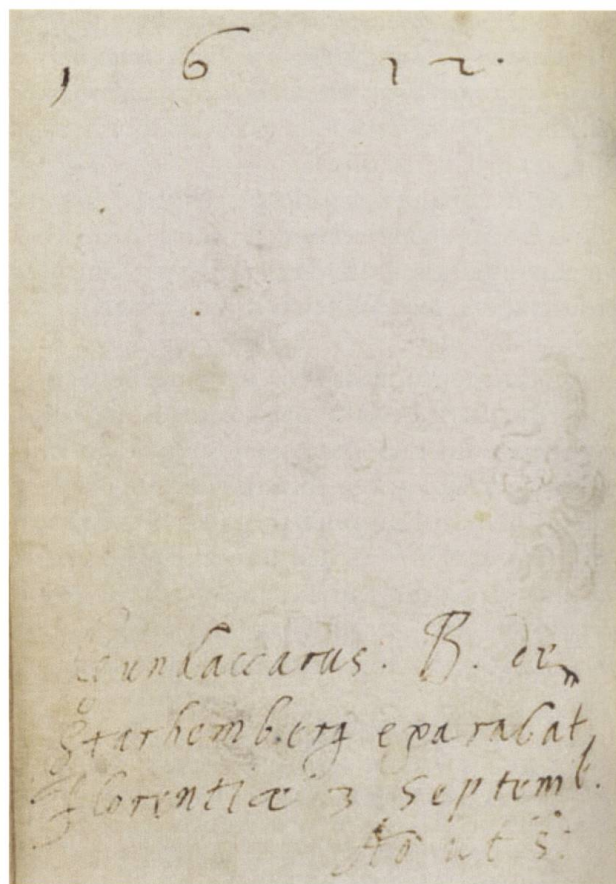 1 6 12.
Gundaccarus. B. de
Starhemberg exarabat
Florentiæ 3 Septemb.
Ao ut s: